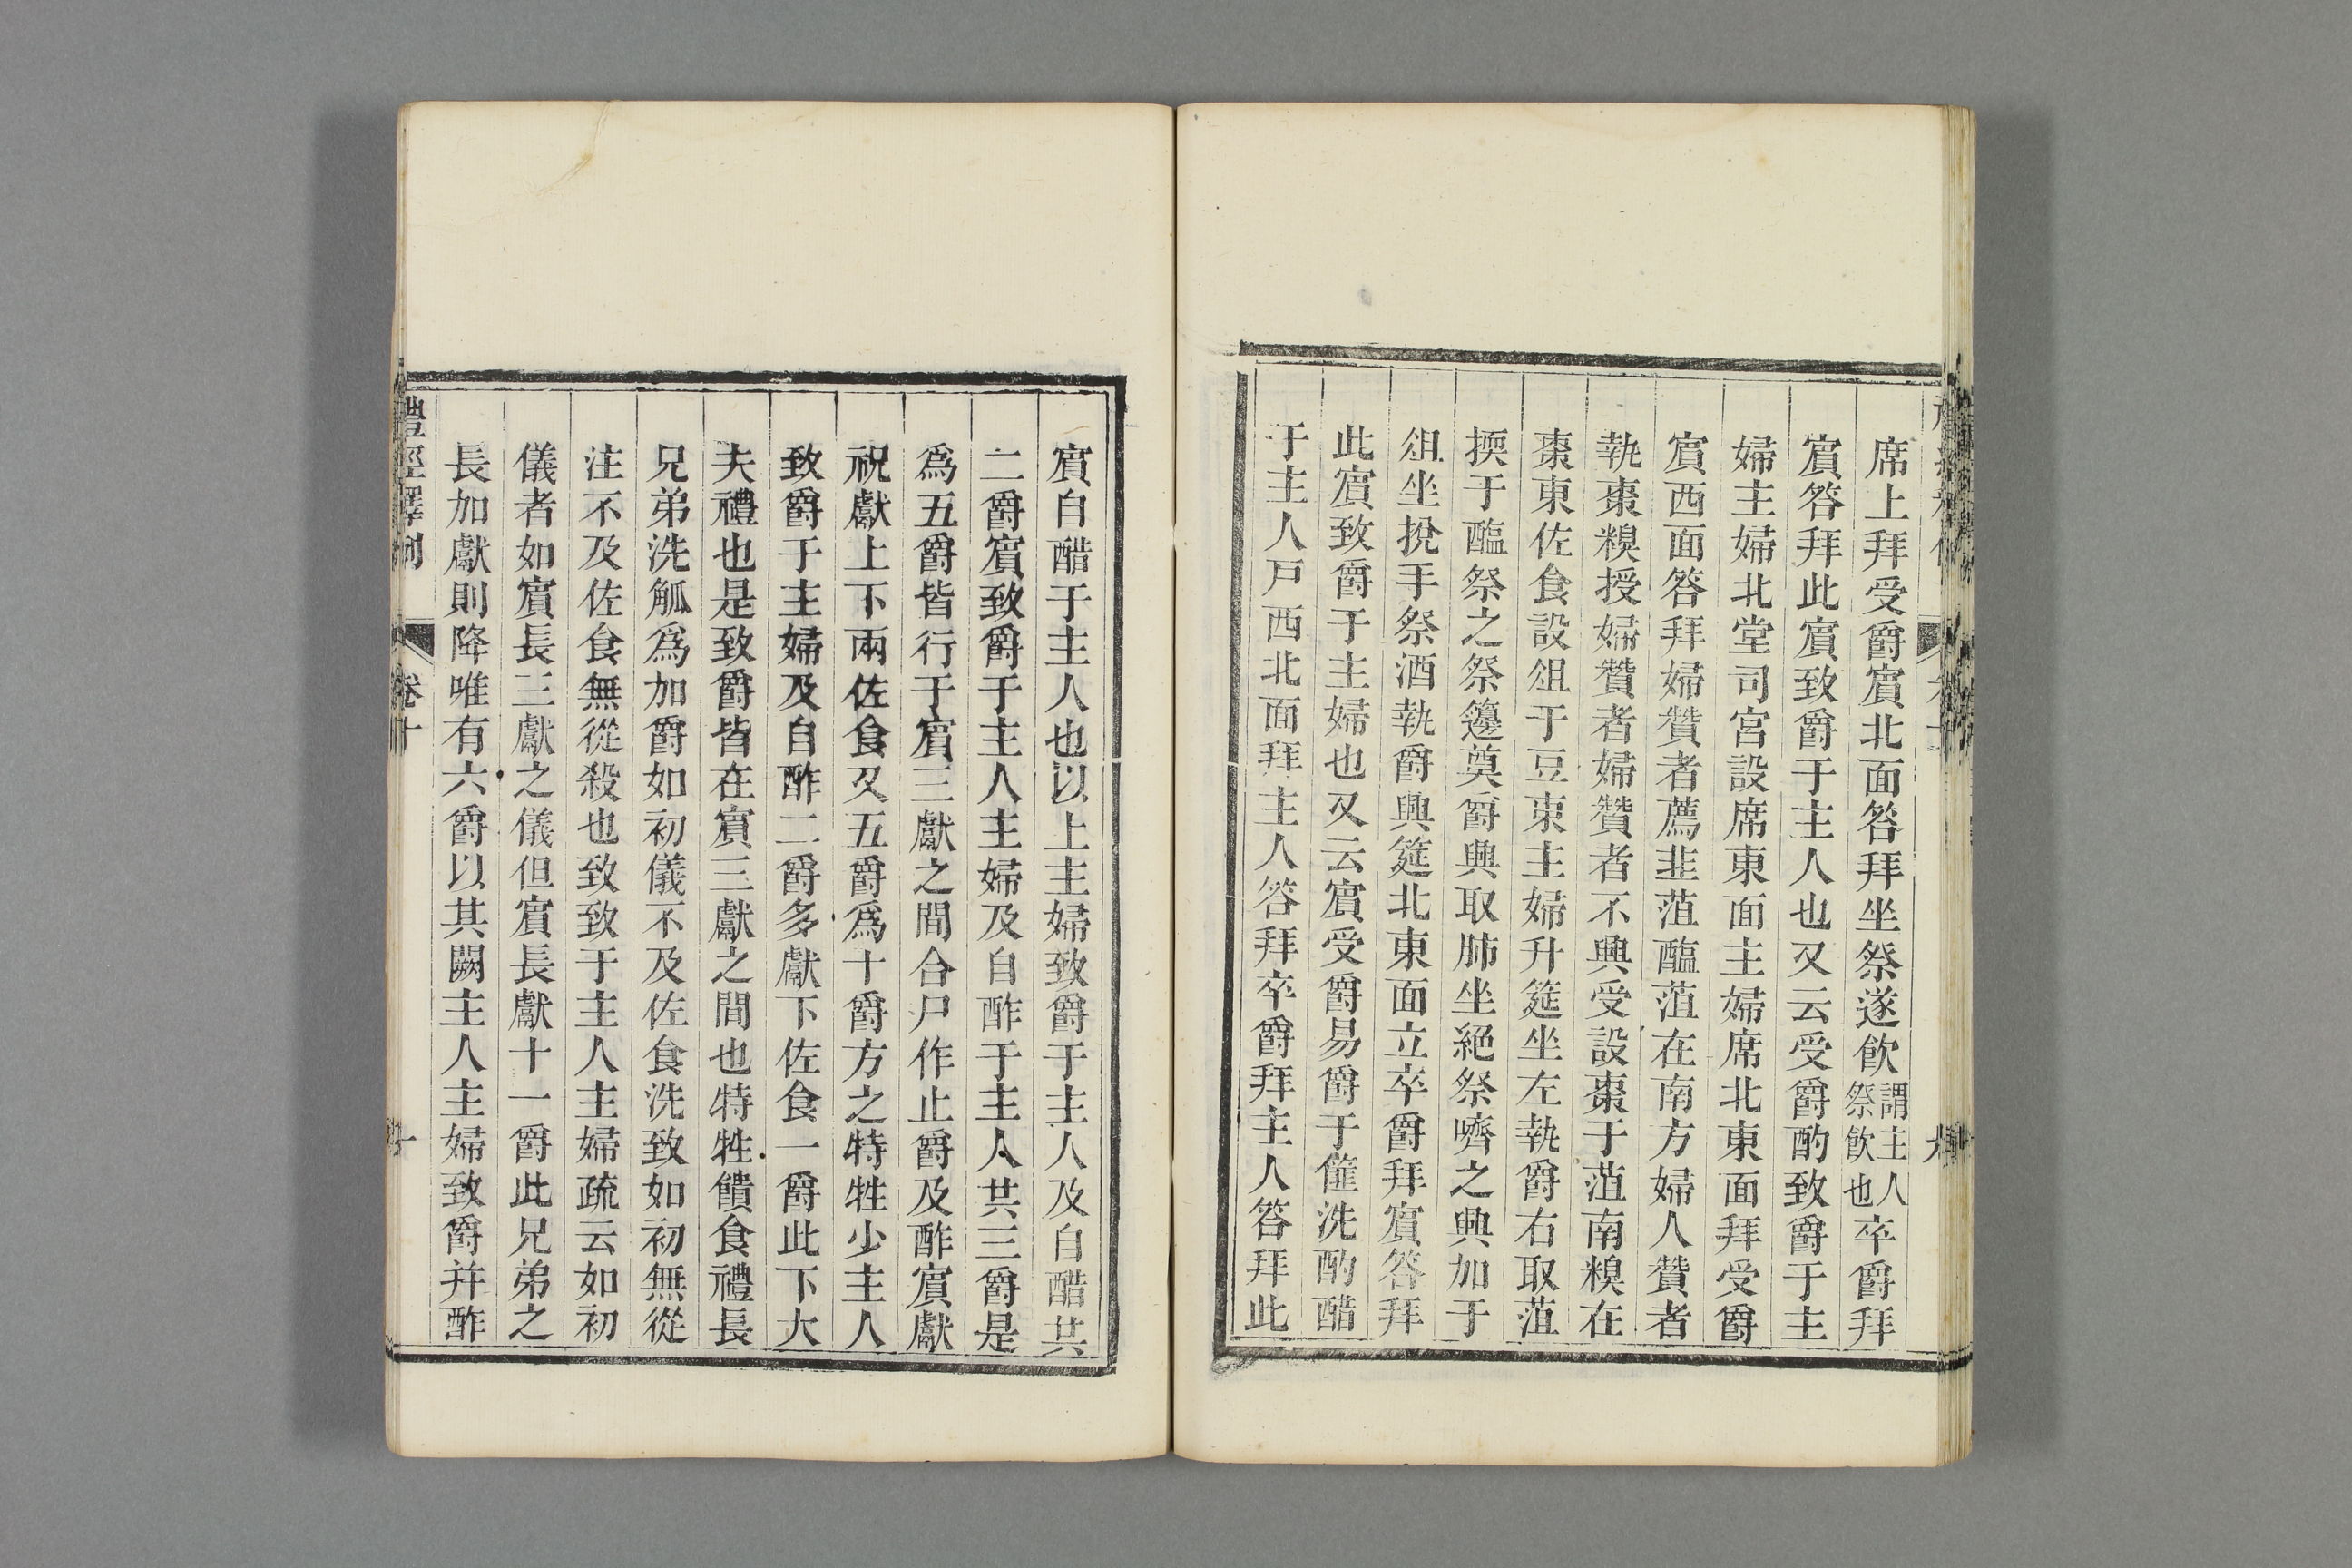 席上拜受爵賔北面答拜坐祭遂飲謂主人祭飲也卒爵拜
賔答拜此賔致爵于主人也又云受爵酌致爵于主
婦主婦北堂司宮設席東面主婦席北東面拜受爵
賔西面答拜婦贊者薦韭菹醢菹在南方婦人贊者
執棗糗授婦贊者婦贊者不興受設棗于菹南糗在
棗東佐食設俎于豆東主婦升筵坐左執爵右取菹
擩于醢祭之祭籩奠爵興取肺坐絕祭嚌之興加于
俎坐挩手祭酒執爵興筵北東面立卒爵拜賔答拜
此賔致爵于主婦也又云賔受爵易爵于篚洗酌醋
于主人戸西北面拜主人答拜卒爵拜主人答拜此
賔自醋于主人也以上主婦致爵于主人及自醋共
二爵賔致爵于主人主婦及自酢于主人共三爵是
爲五爵皆行于賔三獻之間合尸作止爵及酢賔獻
祝獻上下兩佐食又五爵爲十爵方之特牲少主人
致爵于主婦及自酢二爵多獻下佐食一爵此下大
夫禮也是致爵皆在賔三獻之間也特牲饋食禮長
兄弟洗觚爲加爵如初儀不及佐食洗致如初無從
注不及佐食無從殺也致致于主人主婦疏云如初
儀者如賔長三獻之儀但賔長獻十一爵此兄弟之
長加獻則降唯有六爵以其闕主人主婦致爵并酢
禮經釋例
卷十
十